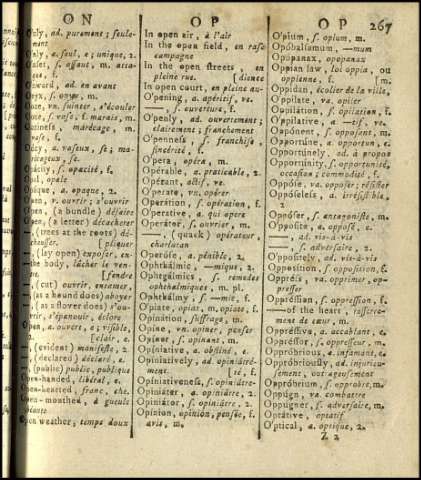 ON
OP
OP
267
Only, ad. purement; seule-
ment
Only, a. seul, e; unique, 2.
Onset, s. assaut, m. atta-
que, f.
Onward, ad. en avant
Onyx, s. onyx, m.
Ooze, vn. suinter, s'écouler
Ooze, s. vase, f. marais, m.
Ooziness, marécage, m.
vase, f.
Oozy, a. vaseux, se; ma-
récageux, se.
Opacity, s. opacité, f.
Opal, opale
Opaque, a. opaque, 2.
Open, v. ouvrir; s'ouvrir
Open, (a bundle) défaire
Open, (a letter) décacheter
—, (trees at the roots) dé-
chausser. [pliquer
—, (lay open) exposer, ex-
the body, lâcher le ven-
[fendre
—, (cut) ouvrir, entamer,
—, (as a hound does) aboyer
—, (as a flower does) s'ou-
vrir, s'épanouir, éclore
Open, a. ouvert, e; visible,
2. [clair, e.
—, (evident) manifeste, 2.
—, (declared) déclaré, e.
—, (public) public, publique
Open-handed, libéral, e.
Open-hearted, franc, che.
Open-mouthed, à gueule
béante
Open weather, temps doux
In open air, à l'air
In the open field, en rase
campagne
In the open streets, en
pleine rue. [dience
In open court, en pleine au-
O'pening, a. apéritif, ve.
—, s. ouverture, f.
O'penly, ad. ouvertement;
clairement; franchement
O'penness, s. franchise,
sincérité, f.
O'pera, opéra, m.
Opérable, a. praticable, 2.
Opérant, actif, ve.
Operate, vn. opérer
Operation, s. opération, f.
O'perative, a. qui opere
Operátor, s. ouvrier, m.
—, (quack) opérateur,
charlatan
Operóse, a. pénible, 2.
Ophthálmic, —mique, 2.
Ophtgálmics, s. remedes
ophthalmiques, m. pl.
Ophthálmy, s. —mie, f.
O'piate, opiat, m. opiate, f.
Opination, suffrage, m.
Opine, vn. opiner, penser
Opiner, s. opinant, m.
Opíniative, a. obstiné, e.
Opíniatively, ad. opiniâtré-
ment. [té, f.
Opíniativeness, s. opiniâtre-
Opiniátor, a. opiniâtre, 2.
Opiniátor, s. opiniâtre, 2.
Opinion, opinion, pensée, f.
avis, m.
O'pium, s. opium, m.
Opóbalsamum, —mum
Opópanax, opopanax
Oppian law, loi oppia, ou
[m.
Oppidan, écolier de la ville,
O'ppilate, va. opiler
Oppilation, s. opilation, f.
O'ppilative, a. —tif, ve.
Oppónent, s. opposant, m.
Opportune, a. opportun, e.
Opportúnely, ad. à propos
Opportúnity, s. opportunité,
occasion; commodité, f.
Oppóse, va. opposer; résister
Oppóseless, a. irrésistible,
2.
Oppóser, s. antagoniste, m.
O'pposite, a. opposé, e.
—, ad. vis-à-vis
—, s. adversaire, 2.
O'ppositely, ad. vis-à-vis
Opposition, s. opposition, f.
Oppréss, va. opprimer, op-
presser
Oppréssion, s. oppression, f.
—of the heart, resserre-
ment de cœur, m.
Oppréssive, a. accablant, e.
Oppréssor, s. oppresseur, m.
Oppróbrious, a. infamant, e.
Oppróbriously, ad. injurieu-
sement, outrageusement
Oppróbrium, s. opprobre, m.
Oppúgn, va. combattre
Oppúgner, s. adversaire, m.
Optátive, optatif
O'ptical, a. optique, 2.
Z 2